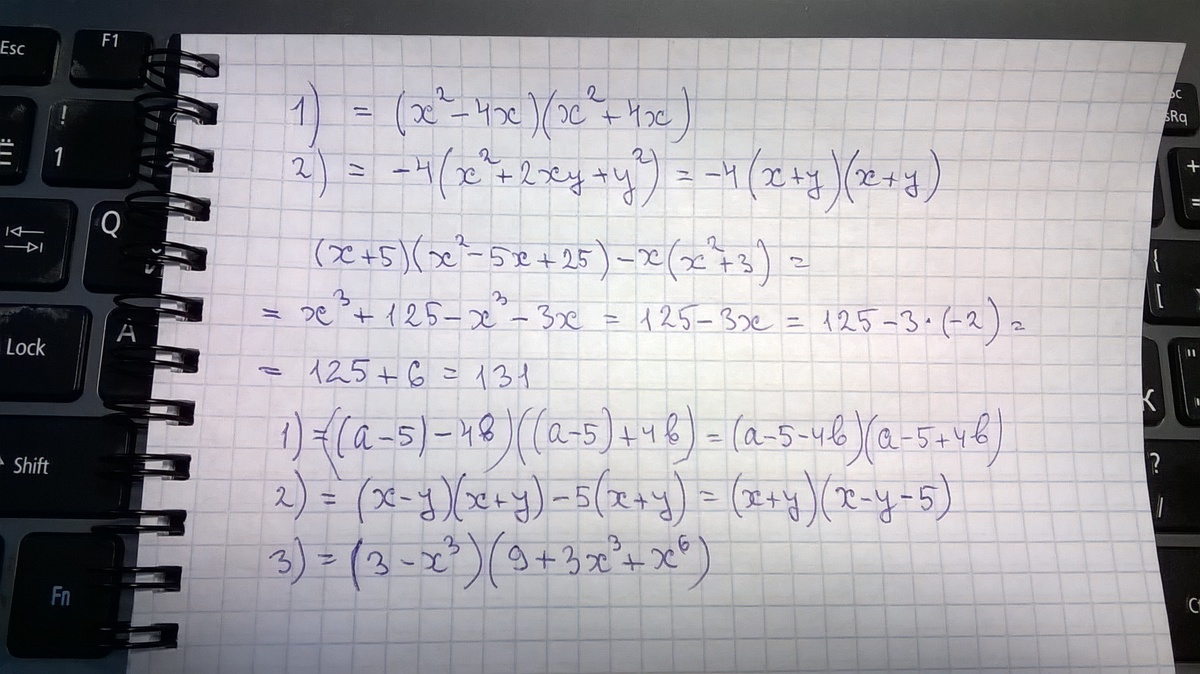 Esc
F1
!
1
Q
A
Lock
Shift
Fn
1) = (x² - 4x)(x² + 4x)
2) = -4(x² + 2xy + y²) = -4(x+y)(x+y)
(x+5)(x² - 5x + 25) - x(x² + 3) =
= x³ + 125 - x³ - 3x = 125 - 3x = 125 - 3·(-2) =
= 125 + 6 = 131
1) = ((a-5) - 4b)((a-5) + 4b) = (a-5-4b)(a-5+4b)
2) = (x-y)(x+y) - 5(x+y) = (x+y)(x-y-5)
3) = (3 - x³)(9 + 3x³ + x⁶)
sRq
+
=
{
[
"
?
/